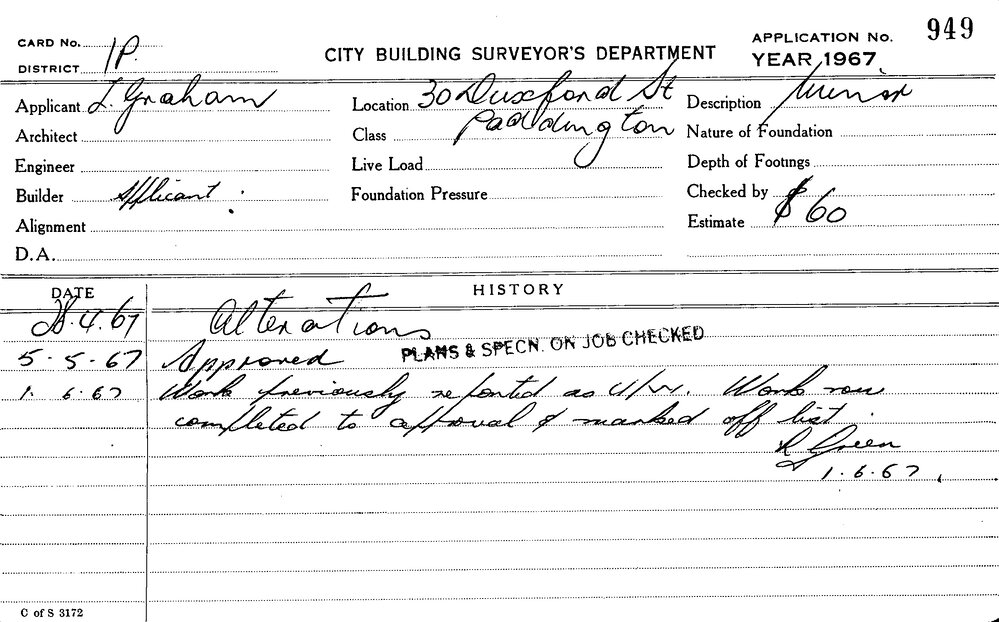 949
CARD No. 1P. CITY BUILDING SURVEYOR'S DEPARTMENT APPLICATION No.
DISTRICT YEAR 1967.
Applicant I. Graham Location 30 Duxford St Description Minor
Architect Class Paddington Nature of Foundation
Engineer Live Load Depth of Footings
Builder Applicant. Foundation Pressure Checked by
Alignment Estimate $60
D.A.
DATE HISTORY
28.4.67 Alterations
5.5.67 Approved PLANS & SPECN. ON JOB CHECKED
1.6.67 Work previously reported as U/W. Work now
completed to approval & marked off list.
R Green
1.6.67.
C of S 3172